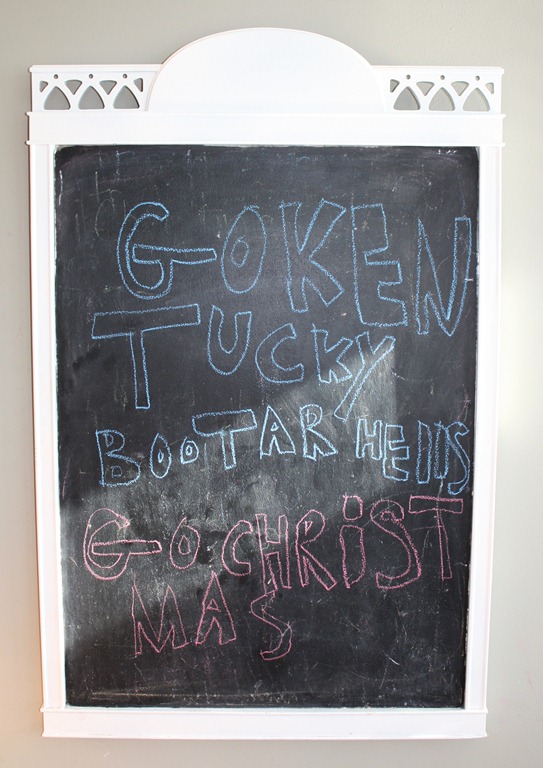 GO KEN
TUCKY
BOO TAR HEllS
GO CHRiST
MAS